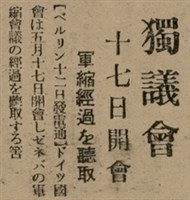 獨議會
十七日開會
軍縮經過を聽取
【ベルリン十二日發電通】ドイツ國
會は五月十七日開會しゼネバの軍
縮會議の經過を聽取する筈